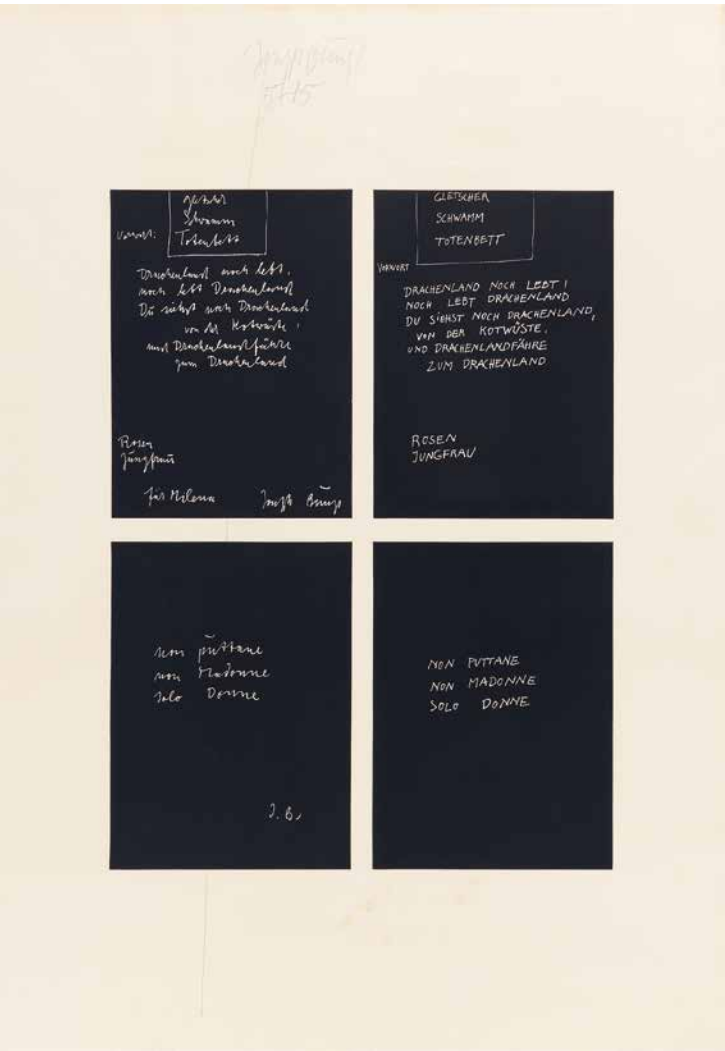 Joseph Beuys
5/15
Gletscher
Schwamm
Totenbett
Vorwort:
Drachenland noch lebt,
noch lebt Drachenland
Du siehst noch Drachenland
von der Kotwüste,
und Drachenlandfähre
zum Drachenland
Rosen
Jungfrau
für Milena Joseph Beuys
GLETSCHER
SCHWAMM
TOTENBETT
VORWORT
DRACHENLAND NOCH LEBT!
NOCH LEBT DRACHENLAND
DU SIEHST NOCH DRACHENLAND,
VON DER KOTWÜSTE.
UND DRACHENLANDFÄHRE
ZUM DRACHENLAND
ROSEN
JUNGFRAU
non puttane
non Madonne
solo Donne
J. B.
NON PUTTANE
NON MADONNE
SOLO DONNE